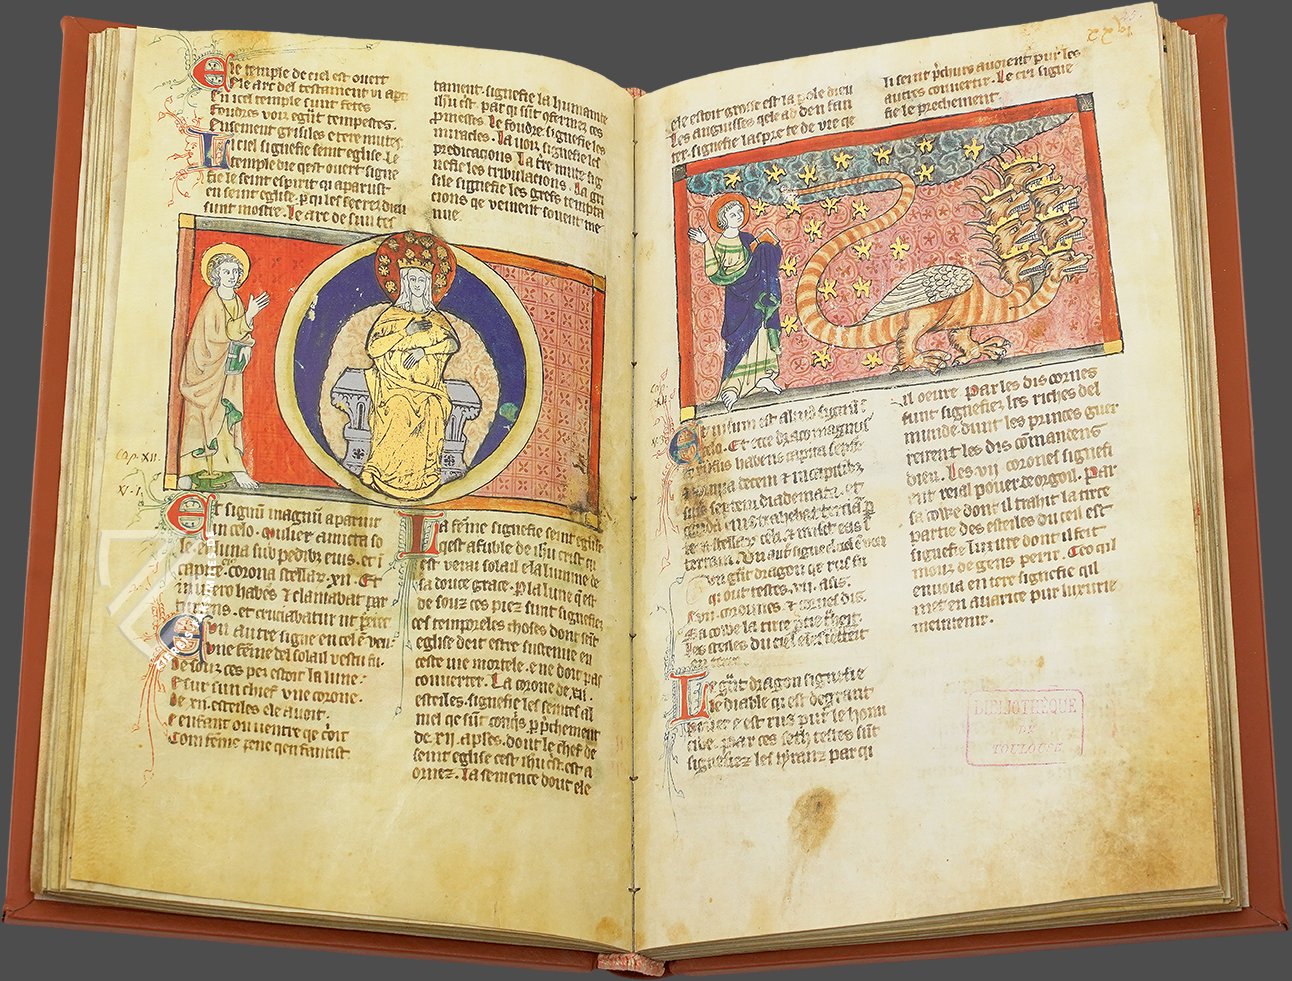 le temple de ciel est ouert
e le arc del testament vi apt
en icel temple sunt fetes
foudres voiz e gñt tempestes.
Ensement grisiles e terre muete
Le ciel signefie seint eglise. le
temple qe est ouert signe
fie le seint espirit qi aparust
en seint eglise. p qi les secrei diau
sunt mostre. Le arc de sun tes
tament. signefie la humanite
ihū est. par qi sūt
pmesses. Le foudre signefie les
miracles. La uoiz signefie les
predicacions. La tre mute sig
nefie les tribulacions. La gri
sile signefie les grefs tempta
cions qe veinent souent me
nue.
Cap. XII.
V. I.
Et signū magnū aparuit
in celo. Mulier amicta so
le. et luna sub pedibꝫ eius. et i
capite eius corona stellaꝝ. xii. Et
in utero habēs & clamabat par
turiens. et cruciabatur ut pariat
Vn autre signe en cel e veu
vne fēme del solail vestu fu.
De souz ces pez estoit la lune.
E sur sun chief vne corone.
De xii. esteiles ele auoit.
e enfant ou ventre qe
Com fēme
La fēme signefie seint eglise
qest afuble de ihū crist qi
est verai solail e la lumine de
sa douce grace. P la lune qest
de souz ces piez sunt signefiez
ces temporeles choses dont seīt
eglise deit estre sustenue en
ceste uie mortele. e ne doit pas
conuerter. La corone de xii.
esteiles. signefie les seintes al
mes qe sūt conqs p pchement
de xii. apres. dont le chef de
seint eglise cest ihū est. est a
ornez. La semence dont ele
ele estoit grosse est la pole dieu
Les anguisses qele ad den fan
ter. signefie la de vie qe
li seint pcheurs auoient pur les
autres conuertir. Le cri signe
fie le prechement.
Cap. XII.
Et uisum est aliud signū ī
celo. Et ecce draco magnus
& rufus habens capita septē
& cornua decem & in capitibꝫ
suis septem diademata. et
cauda eius trahebat terciā p
tē stellaꝝ celi. & misit eas ī
terram. Vn autre signe el ciel e veu
vn gñt dragon qe rus fu
qi out testes. vii. asis.
E vii. corounes. & cornes dis.
Sa cowe la tirce ptie
les esteiles du ciel e les
en terre
Le gñt dragon signefie
le diable qi est de grant
poueir e est rus pur le homi
cide. Par ces seth testes sūt
signefiez les tyranz par qi
il oeure. Par les dis cornes
sunt signefiez les riches del
munde. dunt les princes guer
reirent les dis comandenz
dieu. Les vii corones signefi
ent reial pouer de orgoil. Par
sa cowe dont il trahit la tirce
partie des esteiles du ciel est
signefie luxure dont il feit
mouz de gens perir. Ceo qil
enuoia en tere signefie qil
met en auarice pur luxurie
meintenir.
BIBLIOTHÈQUE
DE
TOULOUSE